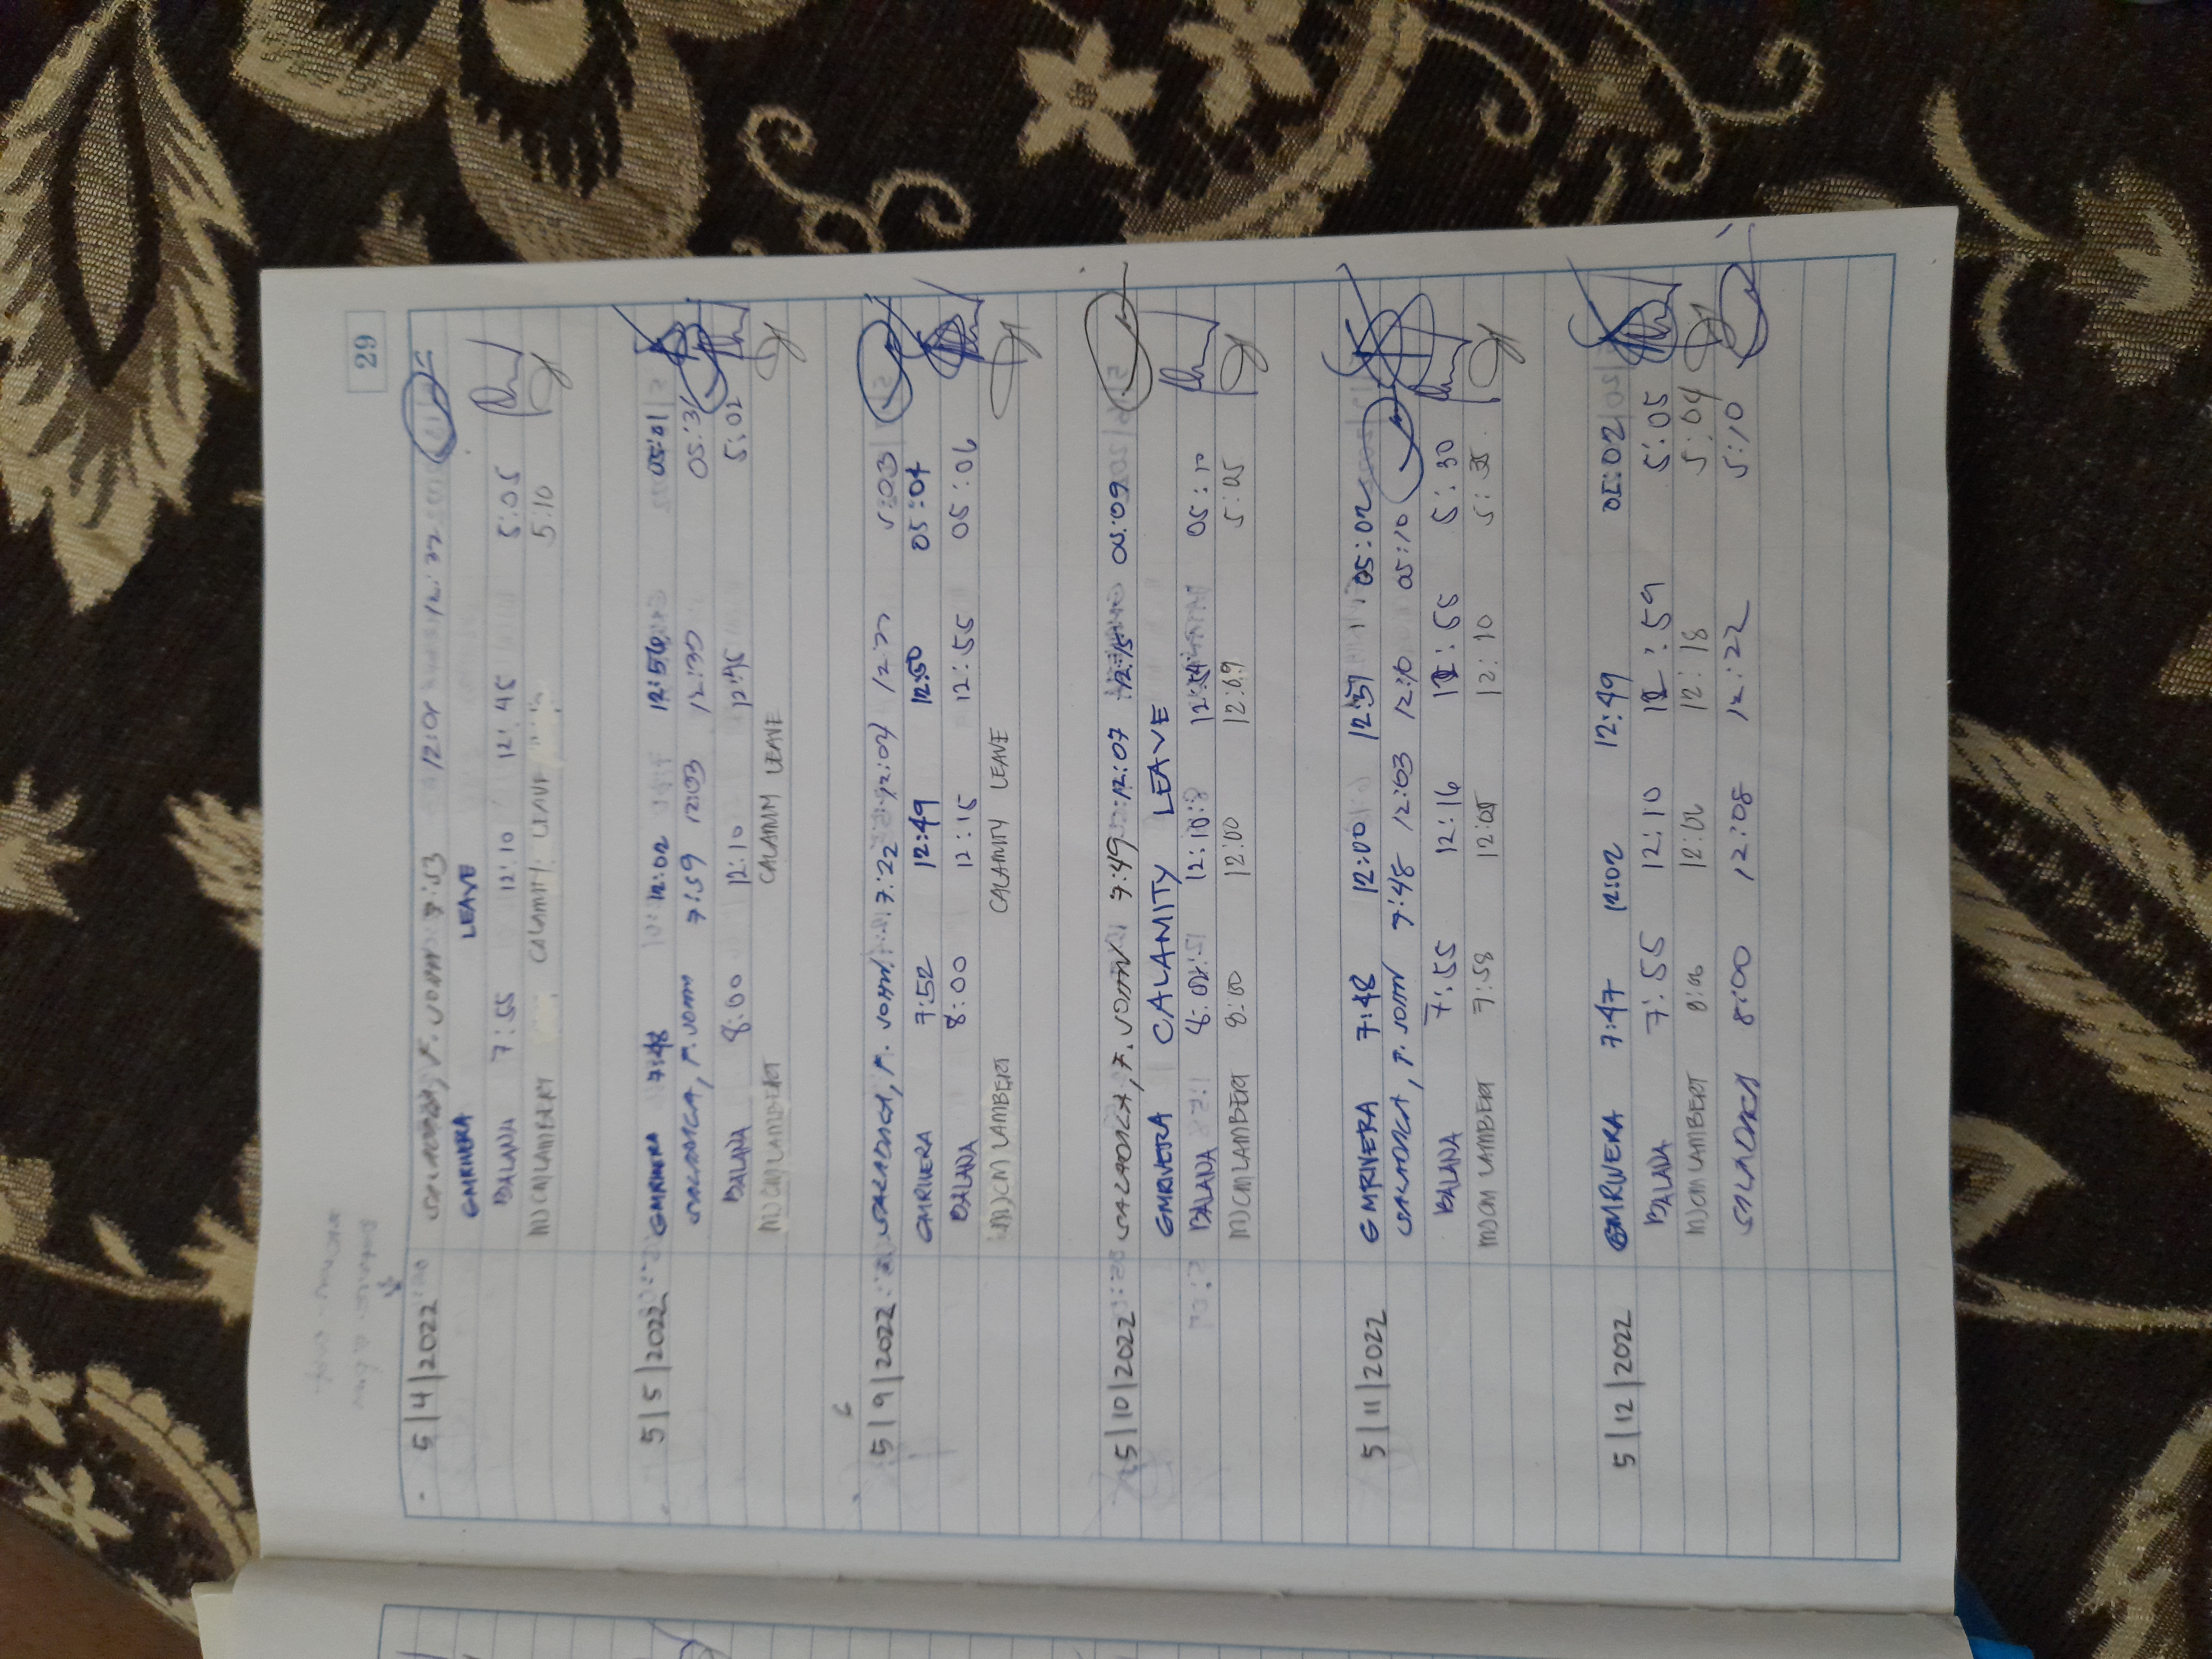 29
5|4|2022 7:53 12:01 12:22
GMRIVERA LEAVE
BALANA 7:55 12:10 12:45 5:05
MJCMLAMBERT CALAMITY LEAVE 5:10
5|5|2022 GMRIVERA 7:48 12:02 12:56 05:01
SALADAGA, F. JOHN 7:59 12:03 12:30 05:31
BALANA 8:00 12:10 12:45 5:02
MJCMLAMBERT CALAMITY LEAVE
5|9|2022 SALADAGA, F. JOHN 7:22 12:04 12:22 5:03
GMRIVERA 7:52 12:49 12:50 05:04
BALANA 8:00 12:15 12:55 05:06
MJCMLAMBERT CALAMITY LEAVE
5|10|2022 SALADAGA, F. JOHN 7:49 12:07 12:15 05:09
GMRIVERA CALAMITY LEAVE
BALANA 8:02 12:10 12:54 05:10
MJCMLAMBERT 8:00 12:00 12:09 5:05
5|11|2022 GMRIVERA 7:48 12:00 12:57 05:02
SALADAGA, F. JOHN 7:48 12:03 12:10 05:10
BALANA 7:55 12:16 12:55 5:30
MJCMLAMBERT 7:58 12:05 12:10 5:35
5|12|2022 GMRIVERA 7:47 12:02 12:49 05:02
BALANA 7:55 12:10 12:59 5:05
MJCMLAMBERT 8:06 12:06 12:18 5:04
SALADAGA 8:00 12:08 12:22 5:10